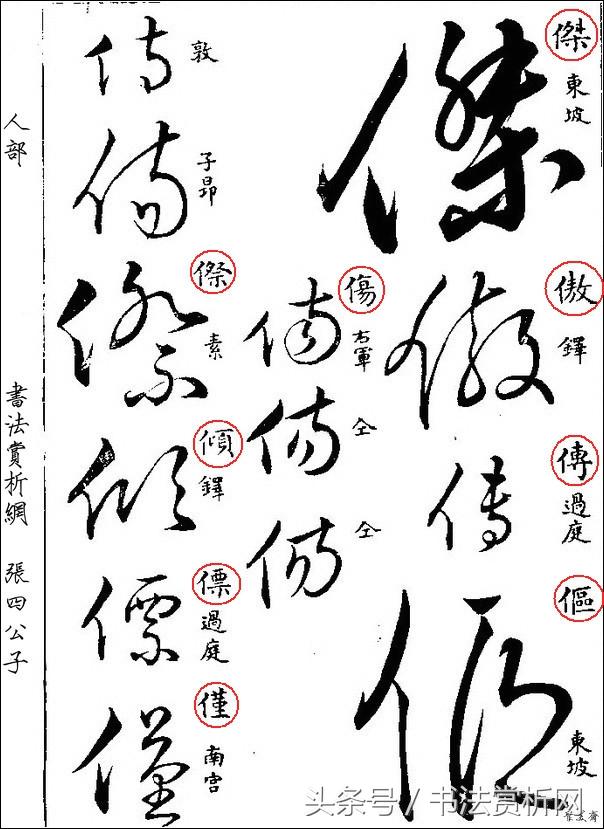 傑 東坡
傲 鐸
傳 過庭
傴 東坡
傷 右軍
仝
仝
敦
子昂
傺 素
傾 鐸
僄 過庭
僅 南宮
人部
書法賞析網 張四公子
头条号/书法赏析网